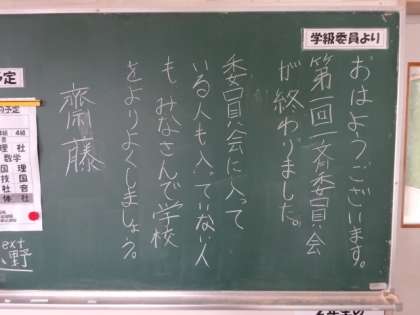 学級委員より
おはようございます。
第一回一斉委員会
が終わりました。
委員会に入って
いる人も入っていない人
も みなさんで学校
をよりよくしましょう。
齋藤
予定
の予定
4組
理 社
数学
国 理
技 国
社 音
体 社
ext
野